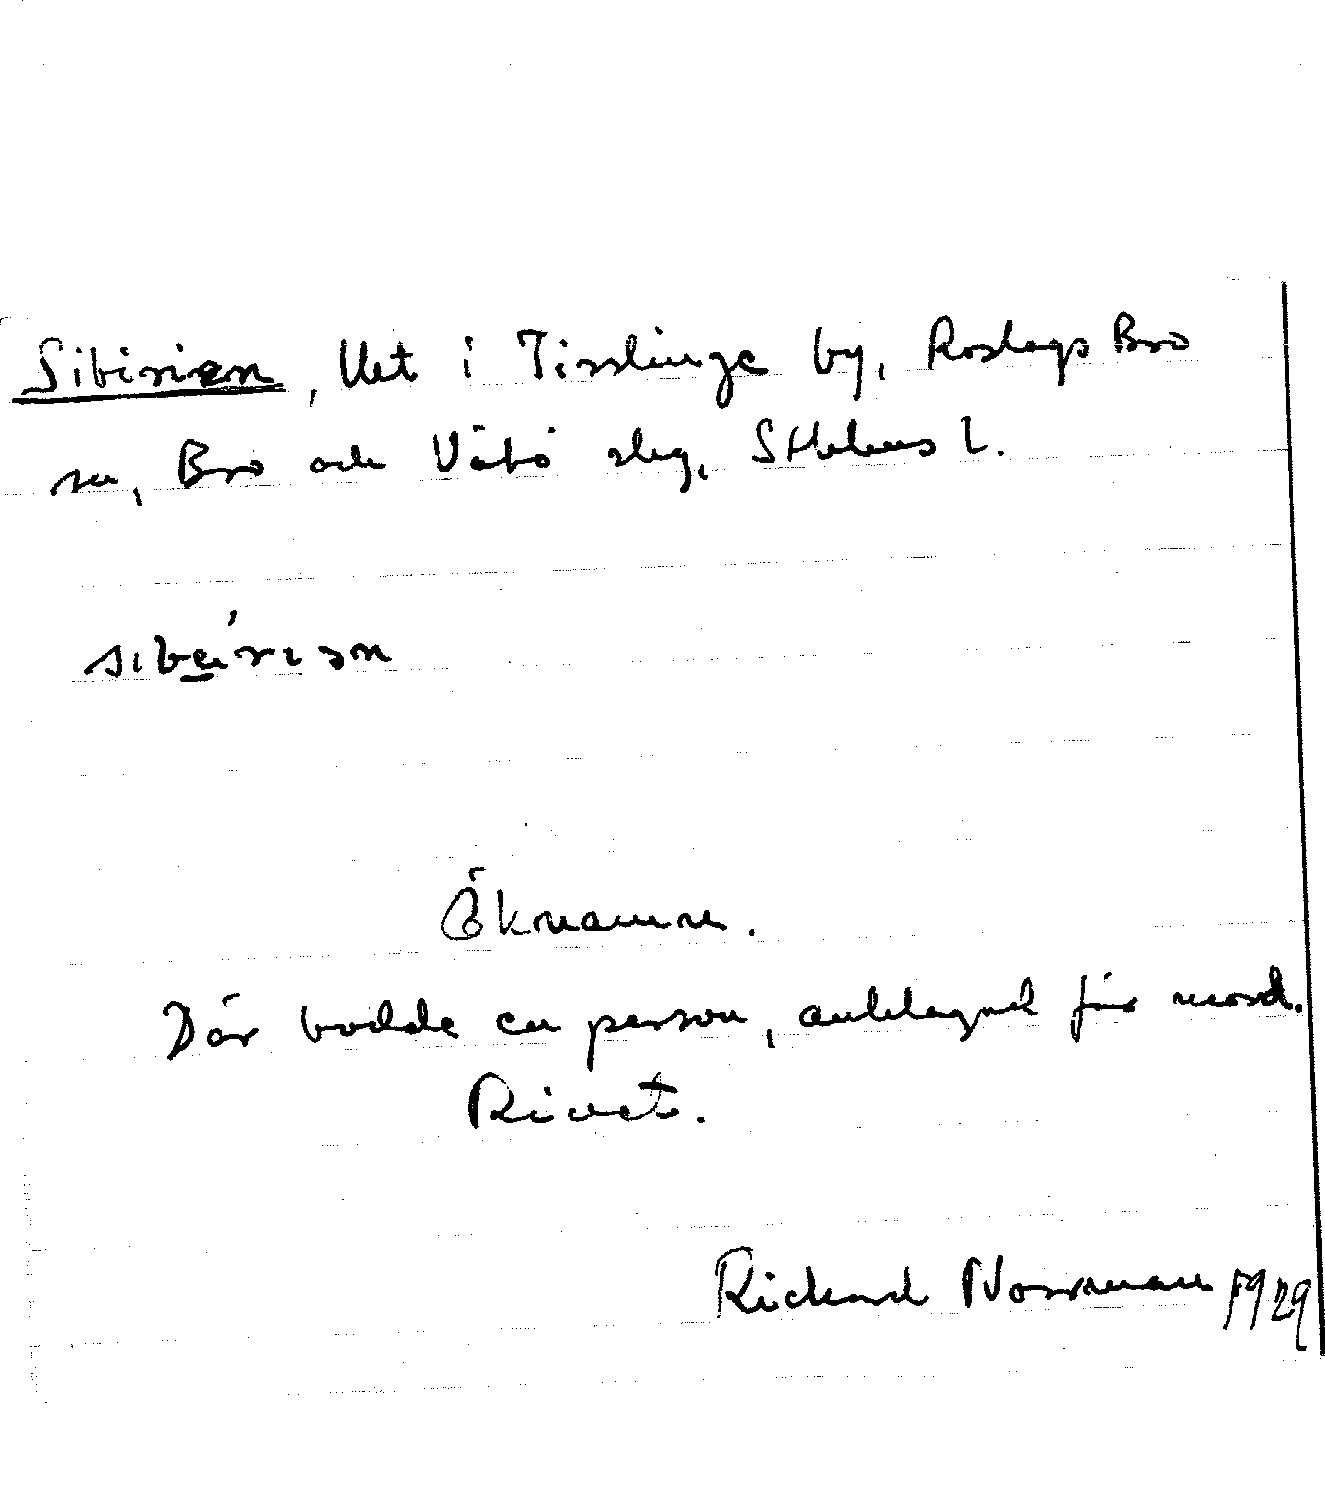 Sibirien, lht i Tisslinge by, Roslags Bro
sn, Bro och Vätö slg, Sthlms l.
sibe̱ʹriən
Öknamn.
Där bodde en person, anklagad för mord.
Rivet.
Rickard Norrman 1929